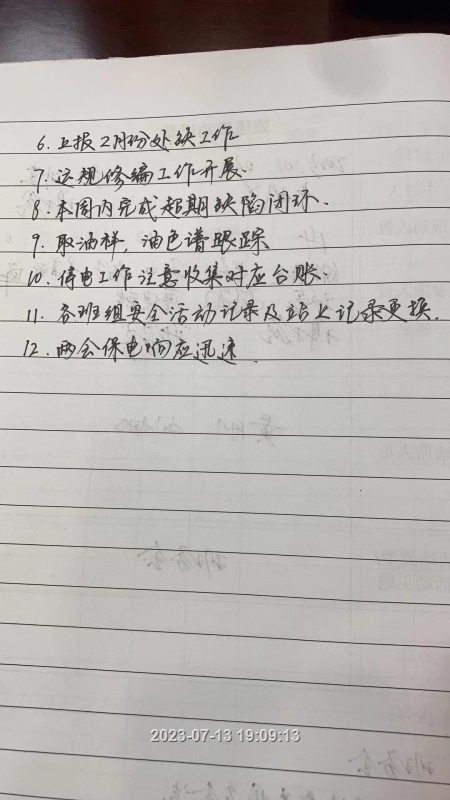 6. 上报2月份处缺工作
7. 运规修编工作开展.
8. 本周内完成超期缺陷闭环.
9. 取油样, 油色谱跟踪
10. 停电工作注意收集对应台账.
11. 各班组安全活动记录及站上记录更换.
12. 两会保电响应迅速.
2023-07-13 19:09:13